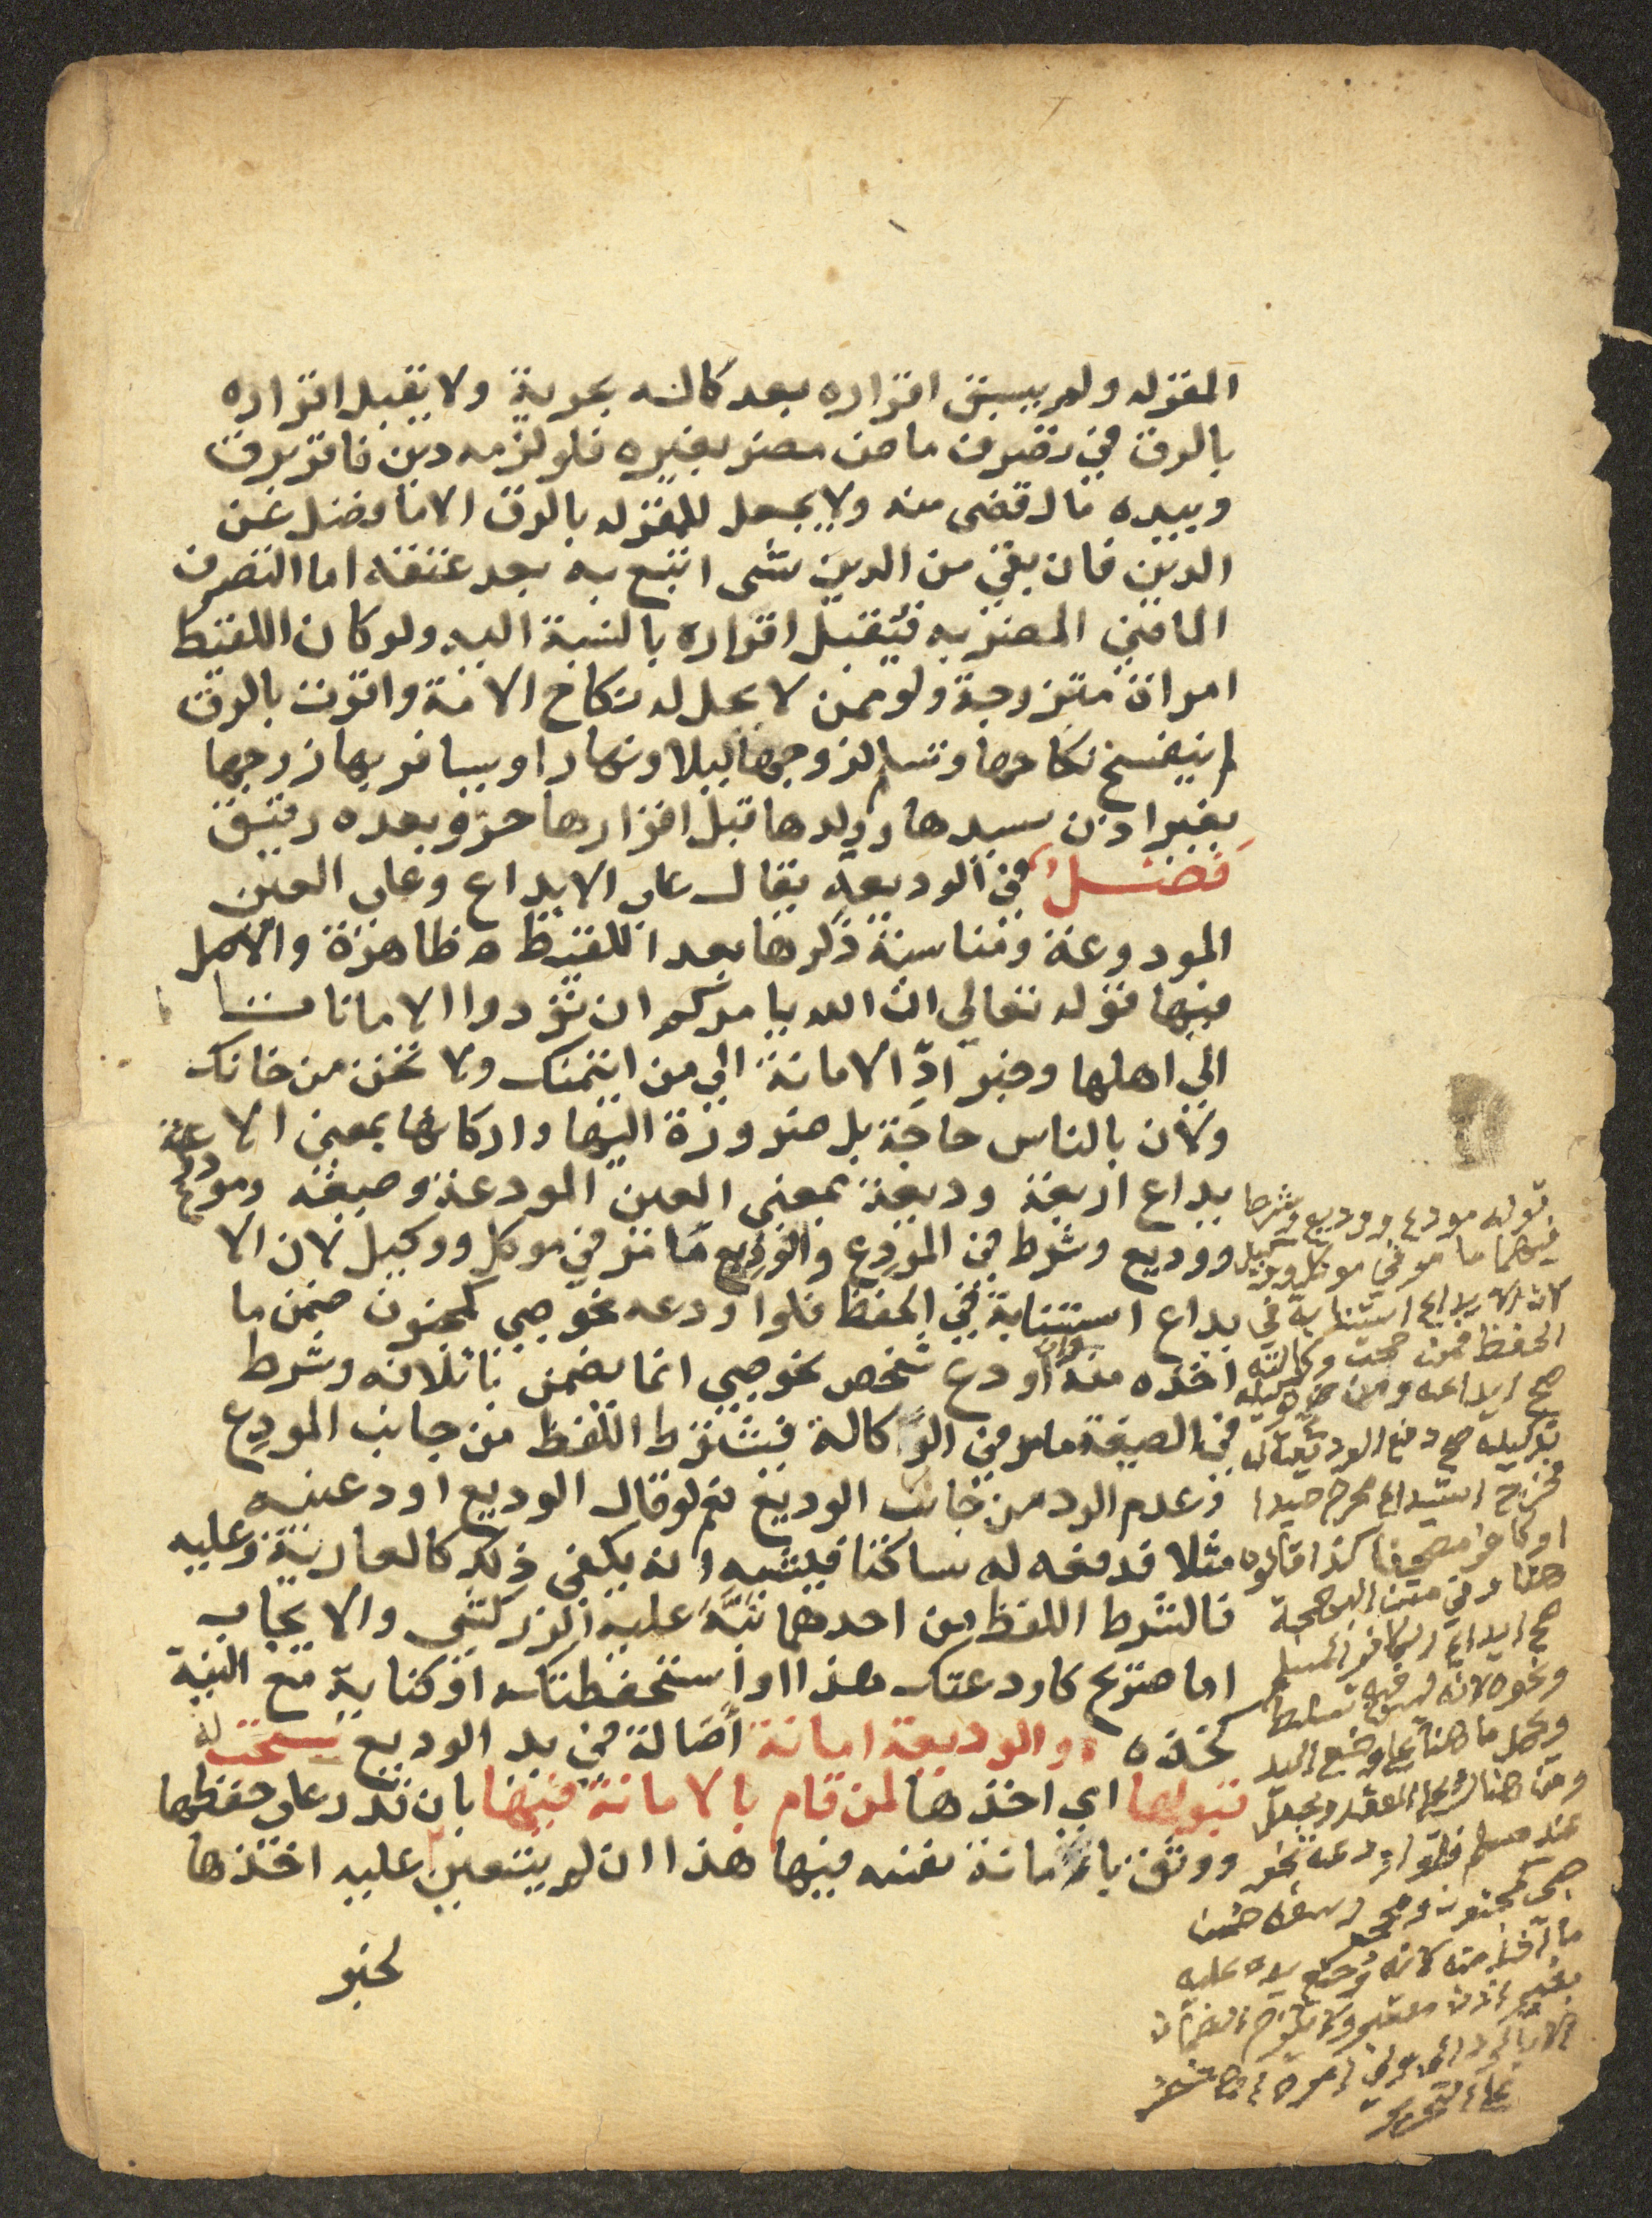 المقرله ولم يسبق اقراره بعد كماله بحرية ولا يقبل اقراره
بالرق في تصرف ماض مضر بغيره فلو لزمه دين فاقر برق
وبيده مال قضى منه ولا يجعل للمقرله بالرق الا ما فضل عن
الدين فان بقي من الدين شى اتبع به بعد عتقه اما التصرف
الماضي المضر به فيقبل اقراره بالنسبة اليه ولو كان اللقيط
امراة متزوجة ولو ممن لا يحل له نكاح الامة واقرت بالرق
لم ينفسخ نكاحها وتسلم لزوجها ليلا ونهارا ويسافر بها زوجها
بغير اذن سيدها وولدها قبل اقرارها حر وبعده رقيق
فصل في الوديعة يقال على الايداع وعلى العين
المودوعة ومناسبة ذكرها بعد اللقيط ظاهرة والاصل
فيها قوله تعالى ان الله يامركم ان تؤدوا الامانات
الى اهلها وخبر ادّ الامانة الى من ائتمنك ولا تخن من خانك
ولان بالناس حاجة بل ضرورة اليها واركانها بمعنى الا
يداع اربعة وديعة بمعنى العين المودعة وصيغة ومودع
ووديع وشرط في المودِع والوديع مامر في موكل ووكيل لان الا
يداع استنابة في الحفظ فلو اودعه نحو صبي كمجنون ضمن ما
اخذه منه وان اودع شخص نحو صبي انما يضمن باتلافه وشرط
في الصيغة مامر في الوكالة فيشترط اللفظ من جانب المودِع
وعدم الرد من جانب الوديع نعم لو قال الوديع اودعنيه
مثلا فدفعه له ساكتا فيشبه ان يكفي ذلك كالعارية وعليه
فالشرط اللفظ من احدهما نبَّه عليه الزركشي والايجاب
اما صريح كاودعتك هذا او استحفظتك او كناية مع النية
كخذه والوديعة امانة أصالة في يد الوديع يستحب له
قبولها اي اخذها لمن قام بالامانة فيها بان قدر على حفظها
ووثق بامانة نفسه فيها هذا ان لم يتعين عليه اخذها
لخبر
قوله مودع ووديع وشرط
فيهما ما مر في موكل ووكيل
لان الايداع استنابة في
الحفظ فمن صحت وكالته
صح ايداعه ومن
توكيله صح دفع الوديعة له
فخرج استيداع محرم صيدا
او كافر مصحفا كذا قالوه
هنا
صح ايداع الكافر المسلم
ونحوه لانه ليس فيه تسليط
وحمل ما هنا على وضع اليد
ومن هنا
عند مسلم فلو اودعه نحو
صبي كمجنون ومحجور سفه ضمن
ما اخذ منه لانه وضع يده عليه
بغير اذن معتبر ولا يزول الضمان
الا بالرد الى ولي امره